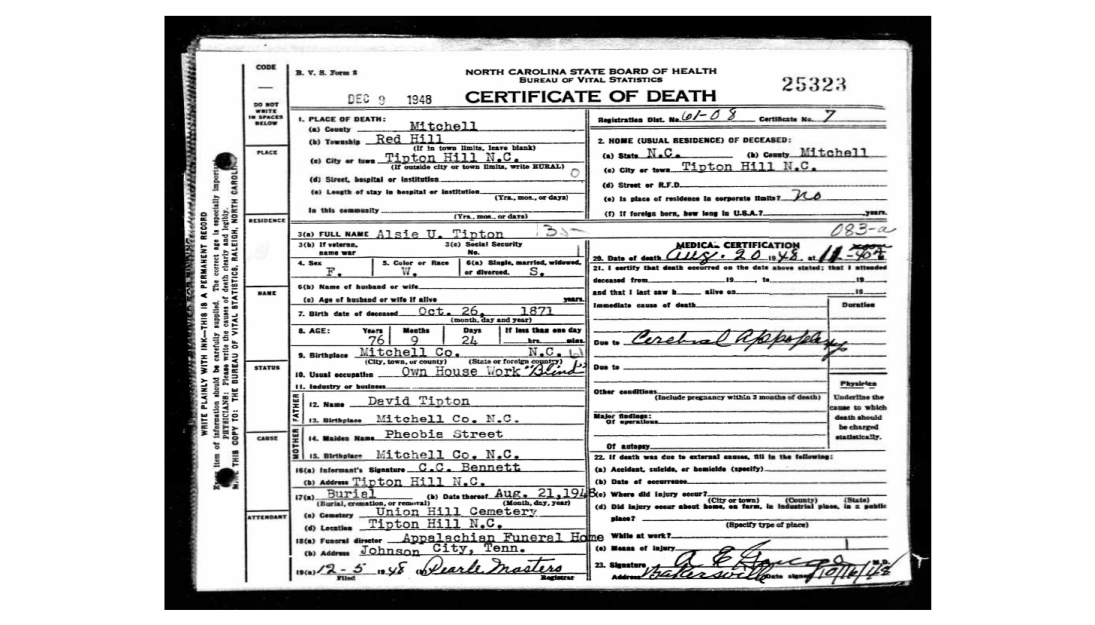 CODE
DO NOT
WRITE
IN SPACES
BELOW
PLACE
RESIDENCE
NAME
STATUS
CAUSE
ATTENDANT
WRITE PLAINLY WITH INK—THIS IS A PERMANENT RECORD
item of information should be carefully supplied. The correct age is especially important.
PHYSICIANS: Please write the causes of death clearly and legibly.
THIS COPY TO: THE BUREAU OF VITAL STATISTICS, RALEIGH, NORTH CAROLINA
B. V. S. Form 8
NORTH CAROLINA STATE BOARD OF HEALTH
BUREAU OF VITAL STATISTICS
DEC 9 1948
CERTIFICATE OF DEATH
25323
Registration Dist. No. 61-08 Certificate No. 7
1. PLACE OF DEATH:
(a) County Mitchell
(b) Township Red Hill
(If in town limits, leave blank)
(c) City or town Tipton Hill N.C.
(If outside city or town limits, write RURAL)
(d) Street, hospital or institution
(e) Length of stay in hospital or institution
(Yrs., mos., or days)
In this community
(Yrs., mos., or days)
2. HOME (USUAL RESIDENCE) OF DECEASED:
(a) State N.C. (b) County Mitchell
(c) City or town Tipton Hill N.C.
(d) Street or R.F.D.
(e) Is place of residence in corporate limits? No
(f) If foreign born, how long in U.S.A.? years.
083-a
3(a) FULL NAME Alsie U. Tipton
3(b) If veteran, name war
3(c) Social Security No.
4. Sex F.
5. Color or Race W.
6(a) Single, married, widowed, or divorced. S.
6(b) Name of husband or wife
(c) Age of husband or wife if alive years.
7. Birth date of deceased Oct. 26, 1871
(month, day and year)
8. AGE: Years 76 Months 9 Days 24 If less than one day hrs. min.
9. Birthplace Mitchell Co. N.C.
(City, town, or county) (State or foreign country)
10. Usual occupation Own House Work "Blind"
11. Industry or business
FATHER
12. Name David Tipton
13. Birthplace Mitchell Co. N.C.
MOTHER
14. Maiden Name Pheobia Street
15. Birthplace Mitchell Co. N.C.
16(a) Informant's Signature C.C. Bennett
(b) Address Tipton Hill N.C.
17(a) Burial (b) Date thereof Aug. 21,1948
(Burial, cremation, or removal) (Month, day, year)
(c) Cemetery Union Hill Cemetery
(d) Location Tipton Hill N.C.
18(a) Funeral director Appalachian Funeral Home
(b) Address Johnson City, Tenn.
19(a) 12-5 1948 Pearle Masters
Filed Registrar
MEDICAL CERTIFICATION
20. Date of death Aug. 20 1948 at 11-40
21. I certify that death occurred on the date above stated; that I attended
deceased from 19 , to 19
and that I last saw h alive on 19
Immediate cause of death
Duration
Due to Cerebral Appoplexy
Due to
Other conditions
(Include pregnancy within 3 months of death)
Physician
Underline the
cause to which
death should
be charged
statistically.
Major findings:
Of operations
Of autopsy
22. If death was due to external causes, fill in the following:
(a) Accident, suicide, or homicide (specify)
(b) Date of occurrence
(c) Where did injury occur?
(City or town) (County) (State)
(d) Did injury occur about home, on farm, in industrial place, in a public
place?
(Specify type of place)
While at work?
(e) Means of injury
23. Signature M.D.
Address Bakersville Date signed 10/16/48